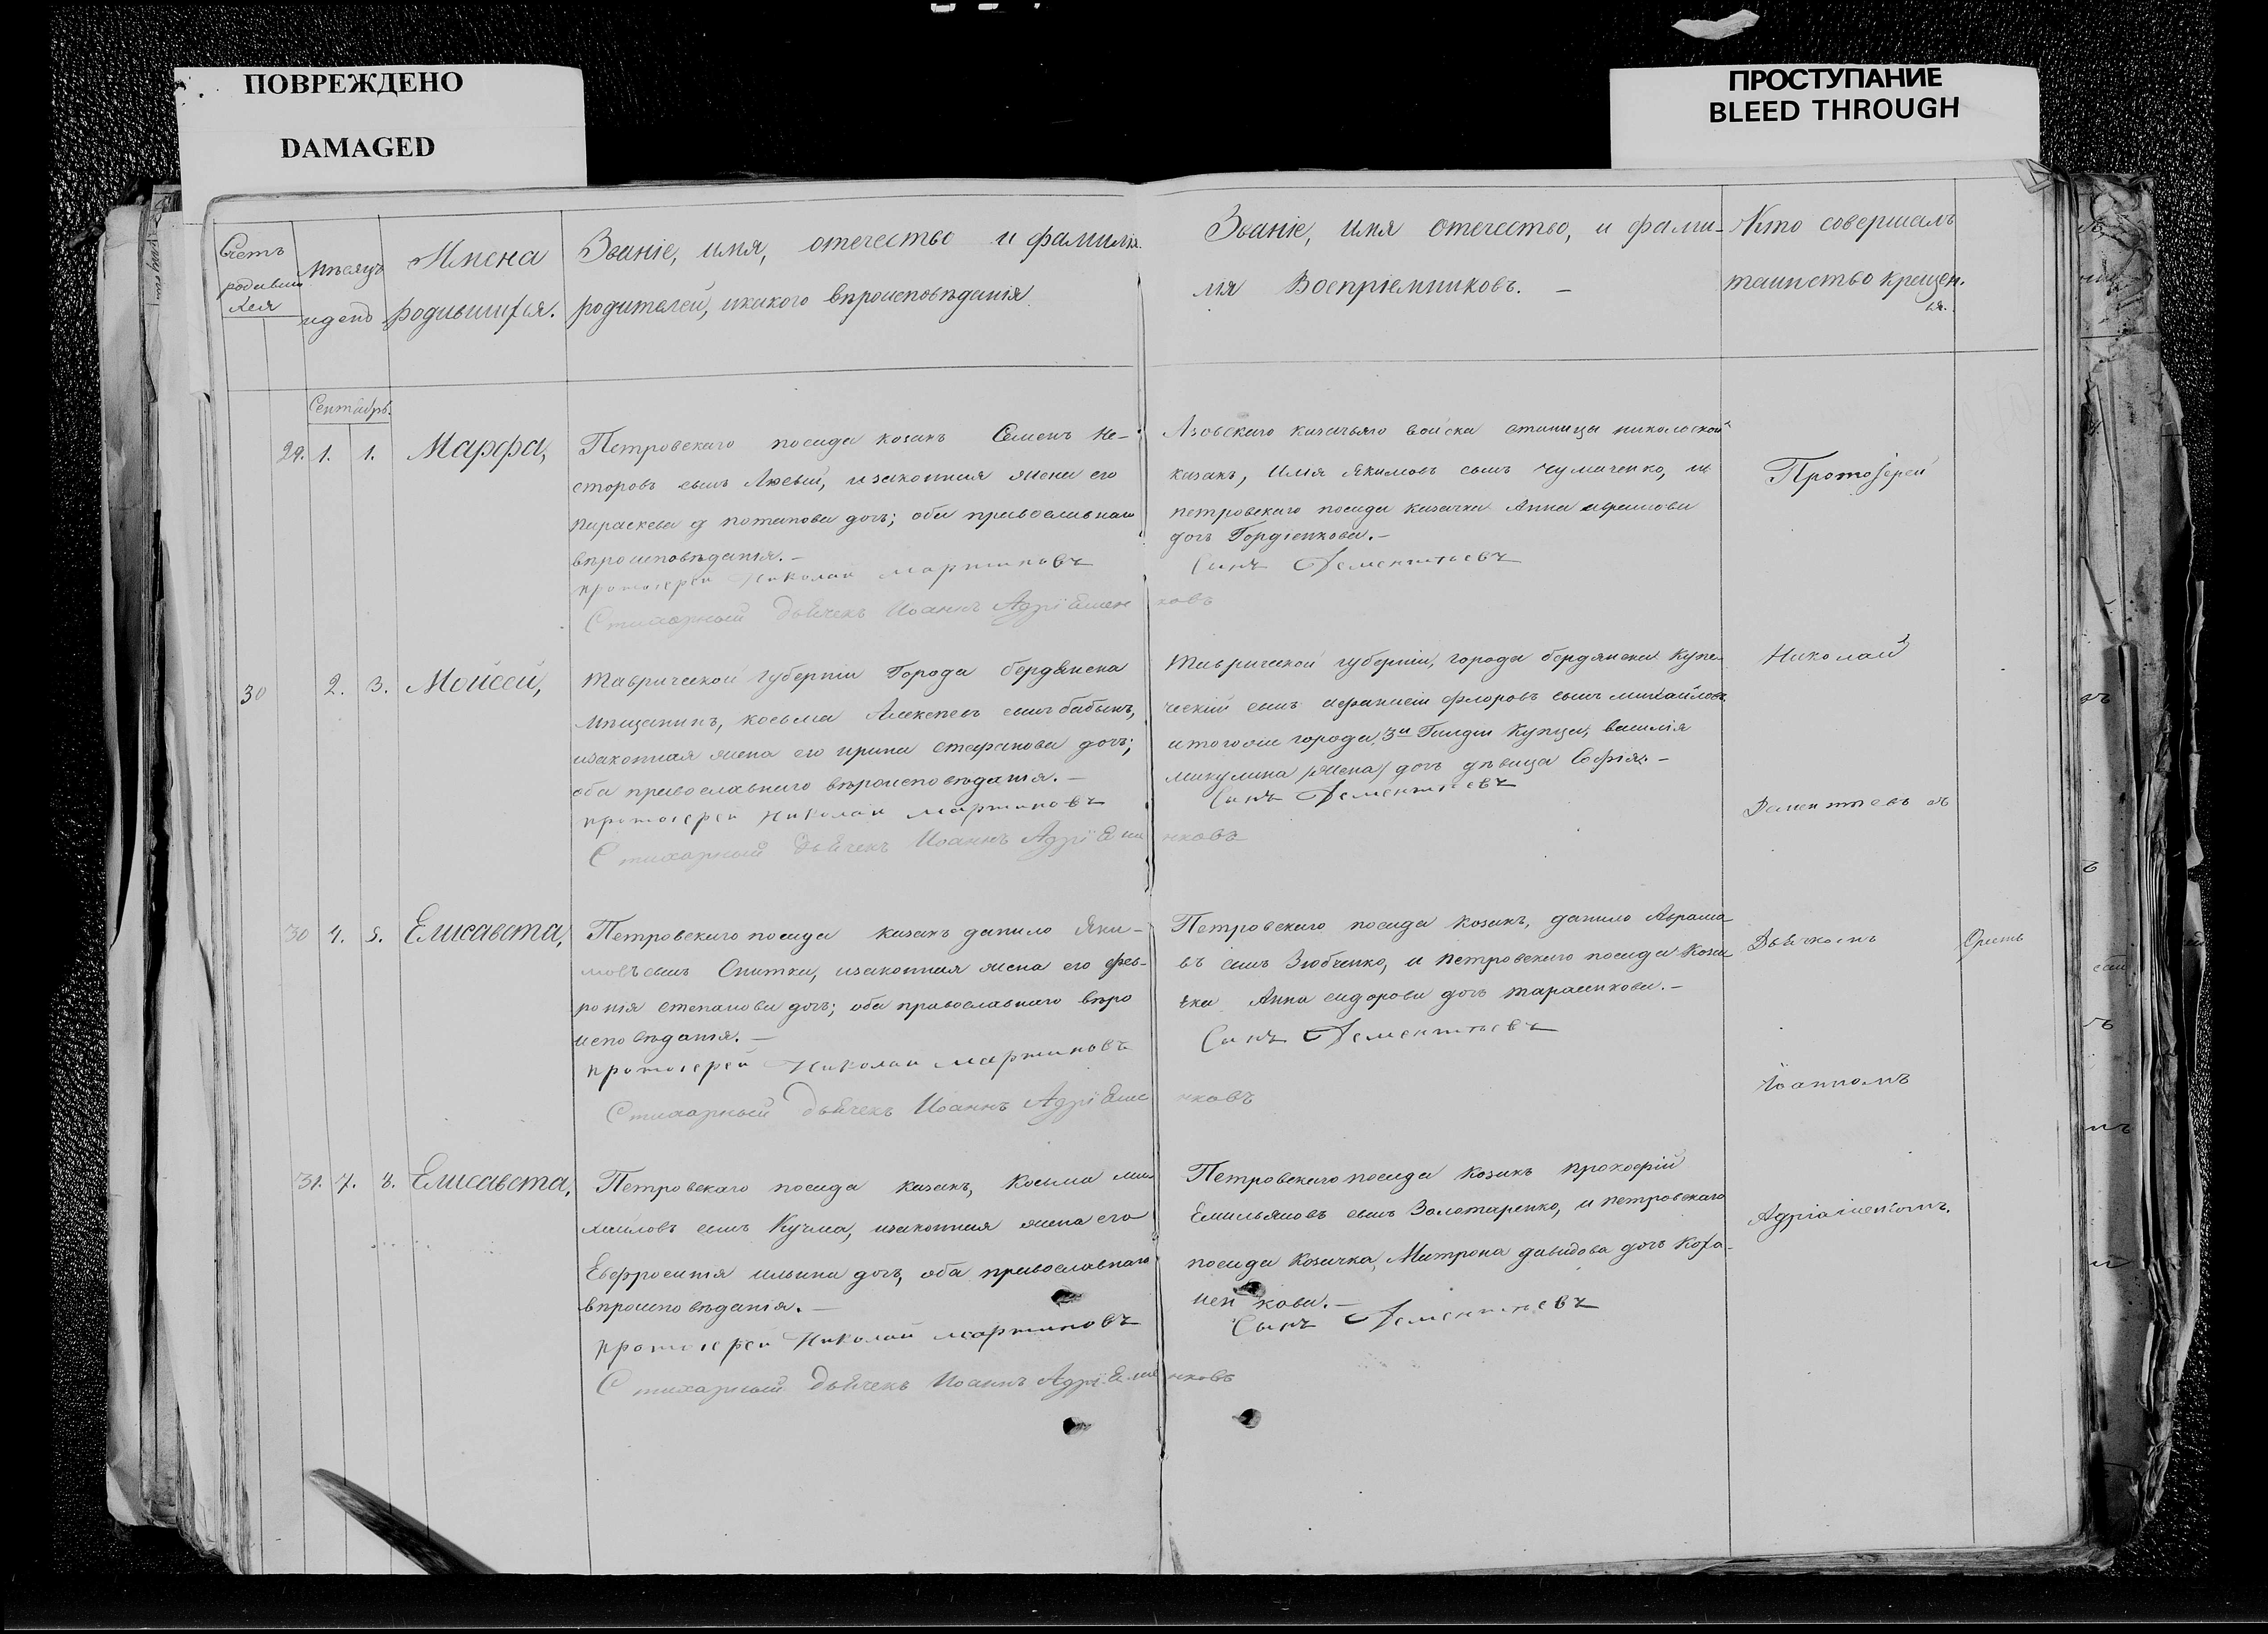 ПОВРЕЖДЕНО
DAMAGED
ПРОСТУПАНИЕ
BLEED THROUGH
Счетъ
родивши
хся
мѣсяцъ
идень
Имена
родившихся.
Званіе, имя, отечество и фамилія
родителей, икакого вѣроисповѣданія
Званіе, имя отечество, и фами-
лія Воспріемниковъ. —
Кто совершалъ
таинство крещен.
ія.
Сентябрь.
29. 1. 1. Марѳа,
Петровскаго посада козакъ Семенъ Не-
сторовъ сынъ Лисый, изаконная жена его
параскева потапова дочь; оба православнаго
вѣроисповѣданія. —
протоіерей Николай мартиновъ
Стихарный дьячекъ Иоаннъ Адріяшенковъ
Азовскаго казачьяго войска станица николоской
казакъ, Илія Якимовъ сынъ чумаченко, и
петровскаго посада казачка Анна абрамова
дочь Гордіенкова. —
Сынъ Дементьевъ
Протоіерей
30 2. 3. Моисей,
Таврической губерніи Города бердянска
мѣщанинъ, косьма Алексѣевъ сынъ бабынъ,
изаконная жена его ирина стефанова дочь;
оба православнаго вѣроисповѣданія. —
протоіерей Николай мартиновъ
Стихарный дьячекъ Иоаннъ Адріяшенковъ
Таврической губерніи, города бердянска Купе-
ческій сынъ афанасій флоровъ сынъ михайловъ
итогоже города, 3й Гилдіи Купца, василія
микулина /жена/ дочь дѣвица Софія. —
Сынъ Дементьевъ
Николай
Дементьевъ съ
30 4. 5. Елисавета,
Петровскаго посада казакъ данило Яки-
мовъ сынъ Снитка, изаконная жена его фев-
ронія степанова дочь; оба православнаго вѣро
исповѣданія. —
протоіерей Николай мартиновъ
Стихарный дьячекъ Иоаннъ Адріяшенковъ
Петровскаго посада козакъ, данило Абрамо
въ сынъ Зюбченко, и петровскаго посада Коза
чка Анна сидорова дочь тарасенкова. —
Сынъ Дементьевъ
Дьячкомъ
Іоанномъ
31. 7. 8. Елисавета,
Петровскаго посада казакъ, Косьма ми
хайловъ сынъ Кучма, изаконная жена его
Евфросинія ильина дочь, оба православнаго
вѣроисповѣданія. —
протоіерей Николай мартиновъ
Стихарный дьячекъ Иоаннъ Адріяшенковъ
Петровскаго посада козакъ прокофій
Емильяновъ сынъ Золотаренко, и петровскаго
посада козачка, Матрона давидова дочь Коха-
нен кова. —
Сынъ Дементьевъ
Адріяшенкомъ.